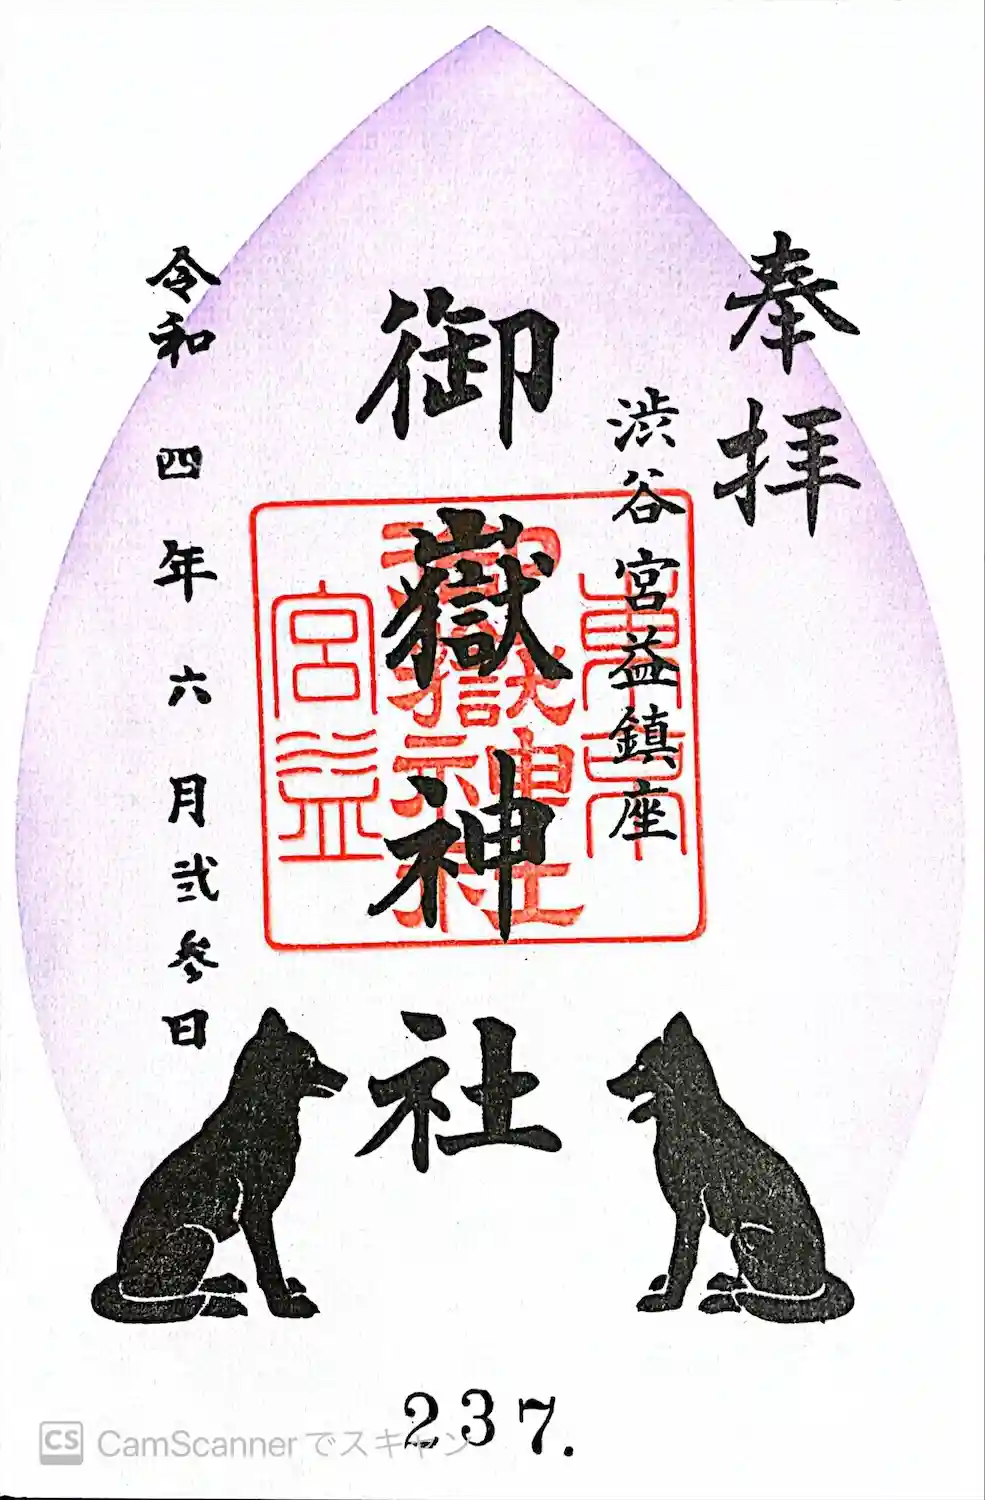 奉拝
渋谷宮益鎮座
御嶽神社
東京
御嶽神社
宮益
令和四年六月弐参日
237.
CS CamScannerでスキャン